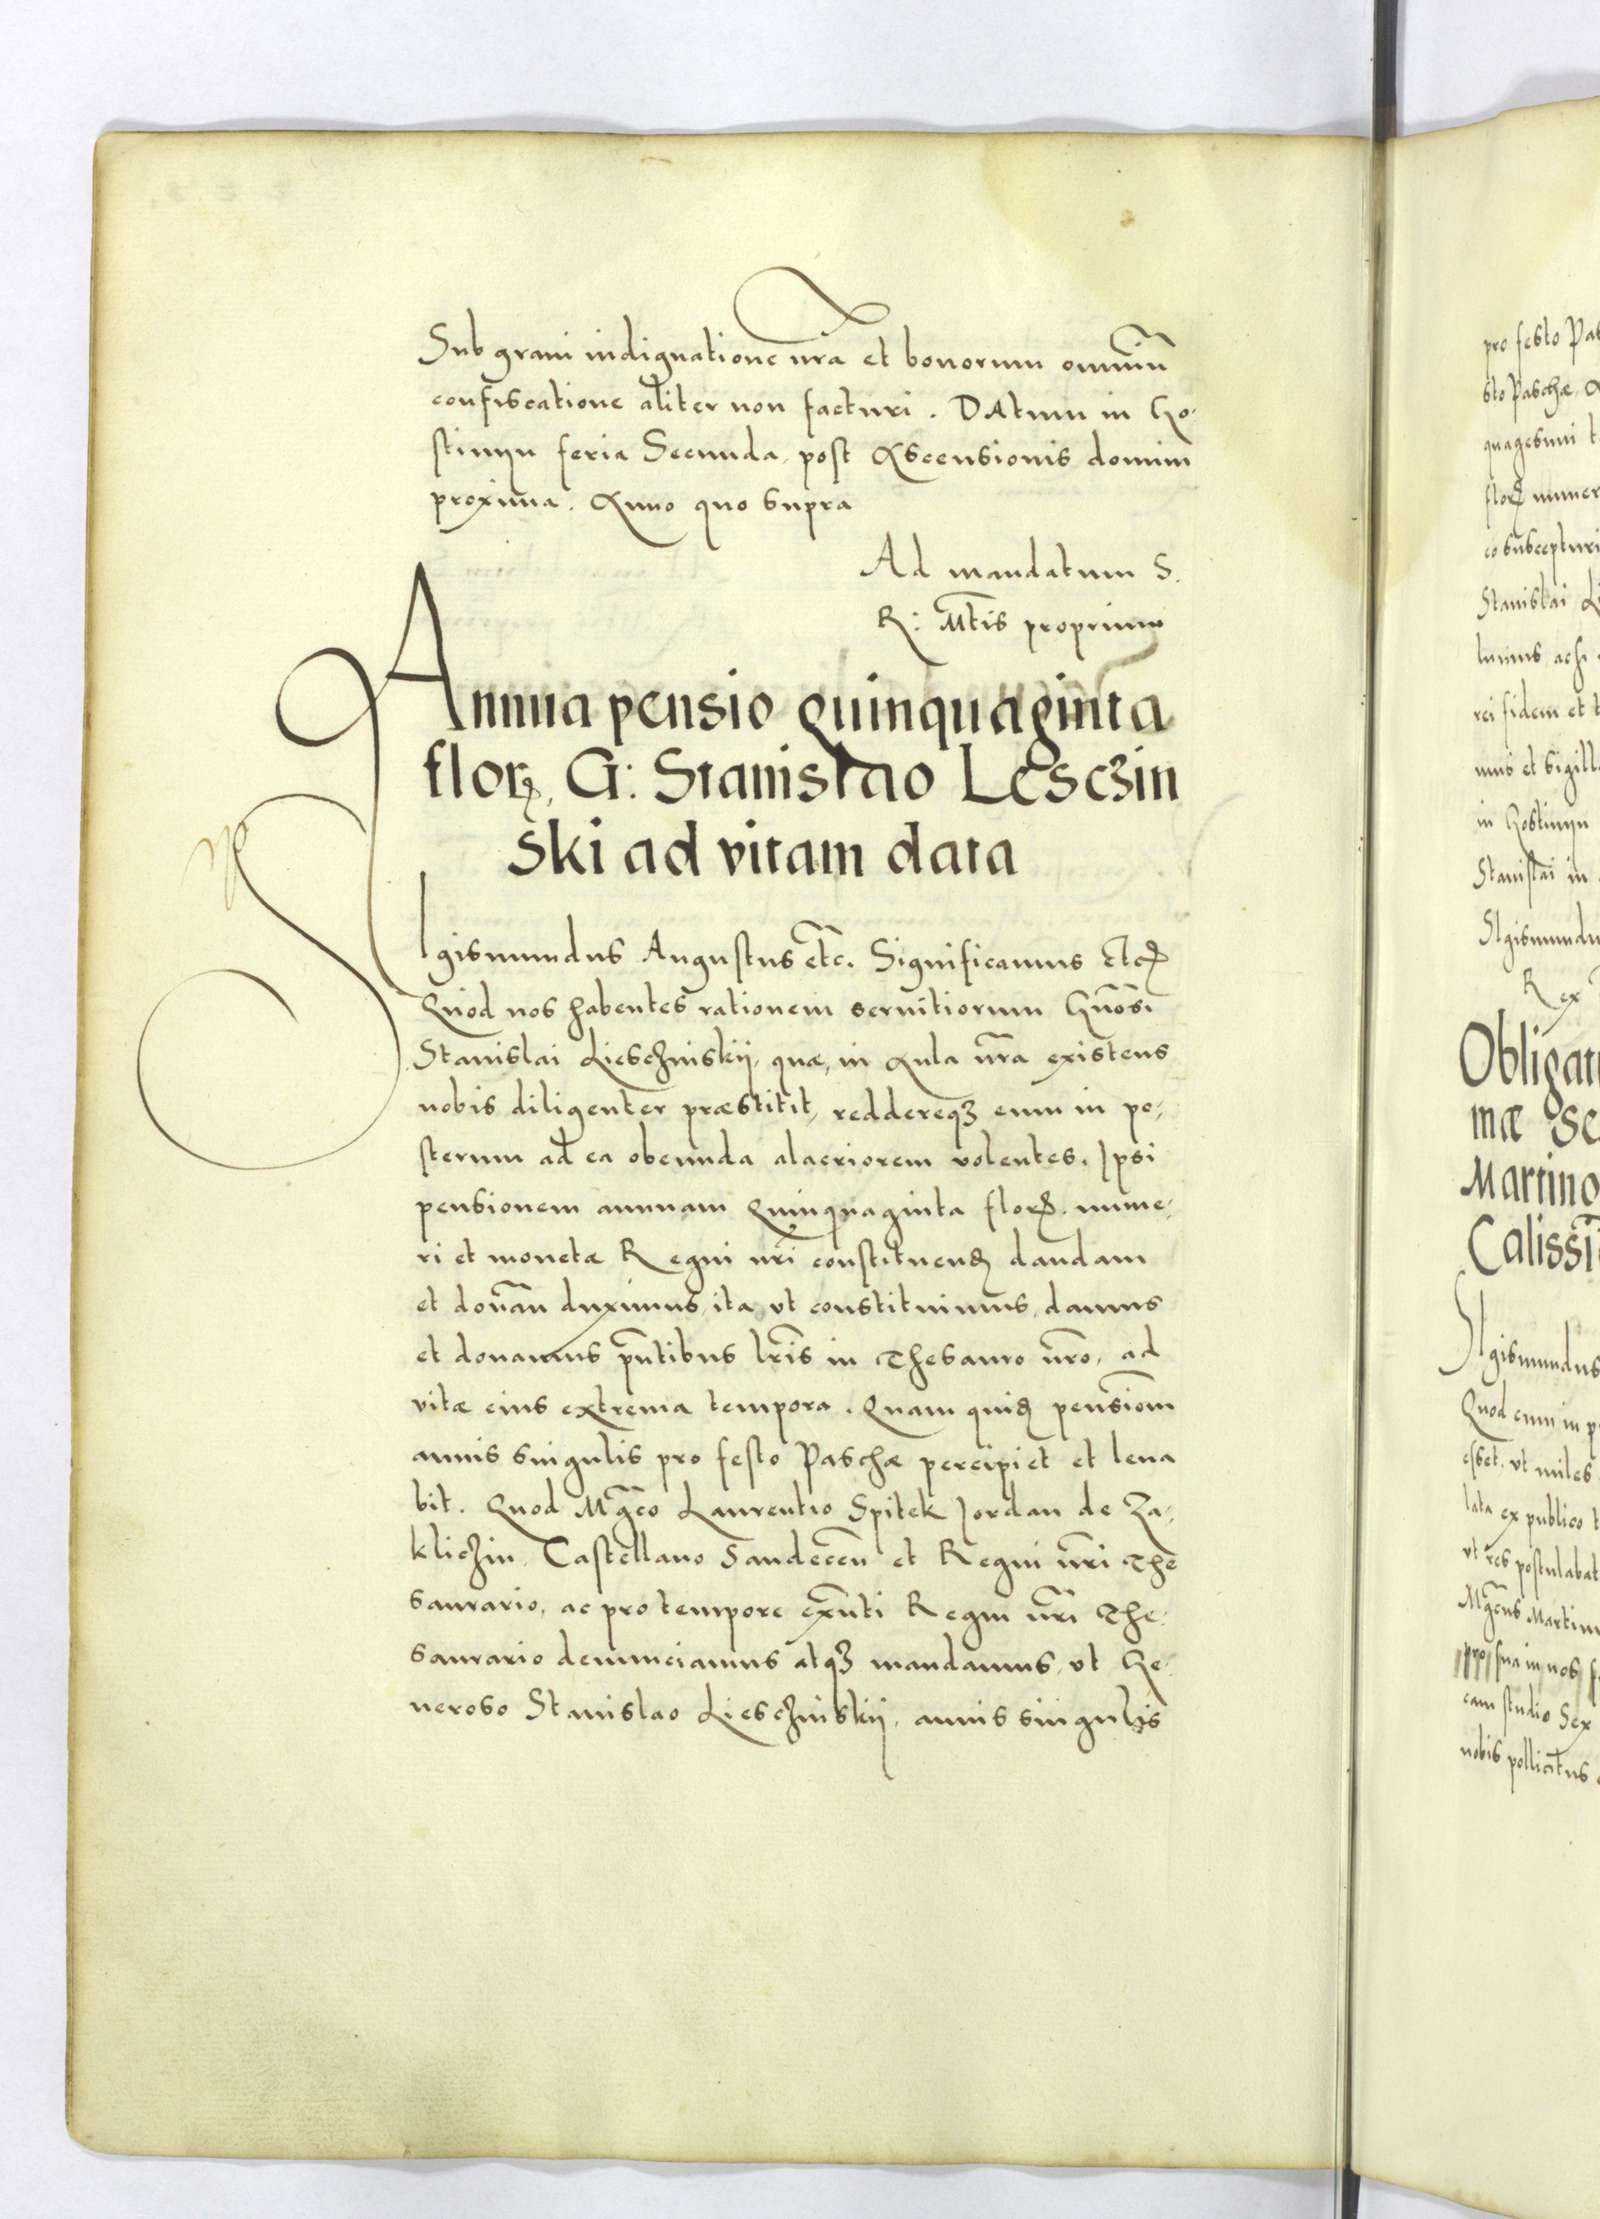 Sub graui indignatione nrã et bonorum omniũ
confiscatione aliter non facturi. DAtum in Go-
stinyn feria Secunda post Ascensionis domini
proxima. Anno quo supra
Ad mandatum S.
R: Mtis proprium
Annua pensio quinquaginta
flor, G: Stanislao Lesczin
ski ad vitam data
SIgismundus Augustus etc. Significamus etc
Quod nos habentes rationem seruitiorum Gnosi
Stanislai Liesczinskij, quæ, in Aula nra existens
nobis diligenter præstitit, reddereqꝫ eum in po-
sterum ad ea obeunda alacriorem volentes. Ipsi
pensionem annuam Quinquaginta flor. nume-
ri et monetæ Regni nri constituend dandam
et donãn duximus, ita vt constituimus, damus
et donamus pñtibus lris in Thesauro nro, ad
vitæ eius extrema tempora. Quam quid pensiom
annis singulis pro festo Paschæ percipiet et leua
bit. Quod Mgco Laurentio Spitek Jordan de Za-
kliczin Castellano Sandecen et Regni nri The
saurario, ac pro tempore exñti Regni nri The-
saurario denunciamus atqꝫ mandamus, vt Ge-
neroso Stanislao Liesczinskij, annis singulis
pro festo Pas
sto Paschæ, A
quagesimi
flor numer
co suscepturi
Stanislai
rei fidem et
mus et sigill
in Gostinyn
Stanislai in
SIgismundu
Rex
Obligati
mæ se
Martino
Calissi
SIgismundus
Quod cum in
esset, vt miles
lata ex publico
vt res postulabat
Mgcus Martin
pro sua in nos
cam studio Sex
nobis pollicitus